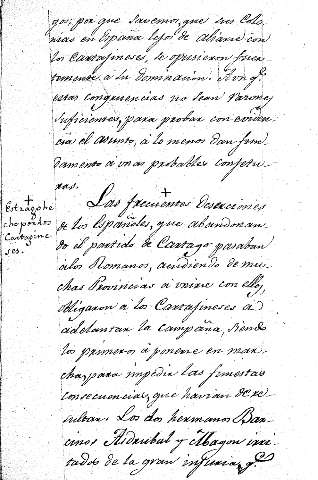 gos; por que savemos, que sus Colo-
nias en España lejos de aliarse con
los Cartajineses, se opusieron fuer-
temente à su dominacion. Aonq.e
estas congruencias no sean razones
suficientes, para probar con eviden-
cia el asunto, à lo menos dan fun-
damento a unas probables conjetu-
ras.
+
Estrago he
cho por los
Cartagine
ses.
Las frecuentes deserciones
de los Españoles, que abandonan-
do el partido de Cartago pasaban
à los Romanos, acudiendo de mu-
chas Provincias à unirse con ellos,
obligaron à los Cartajineses à
adelantar la campaña, siendo
los primeros à ponerse en mar-
cha, para impedir las funestas
consecuencias, que havian de re-
sultar. Los dos hermanos Bar-
cinos Asdrubal y Magon irri-
tados de la gran injuria, q.e